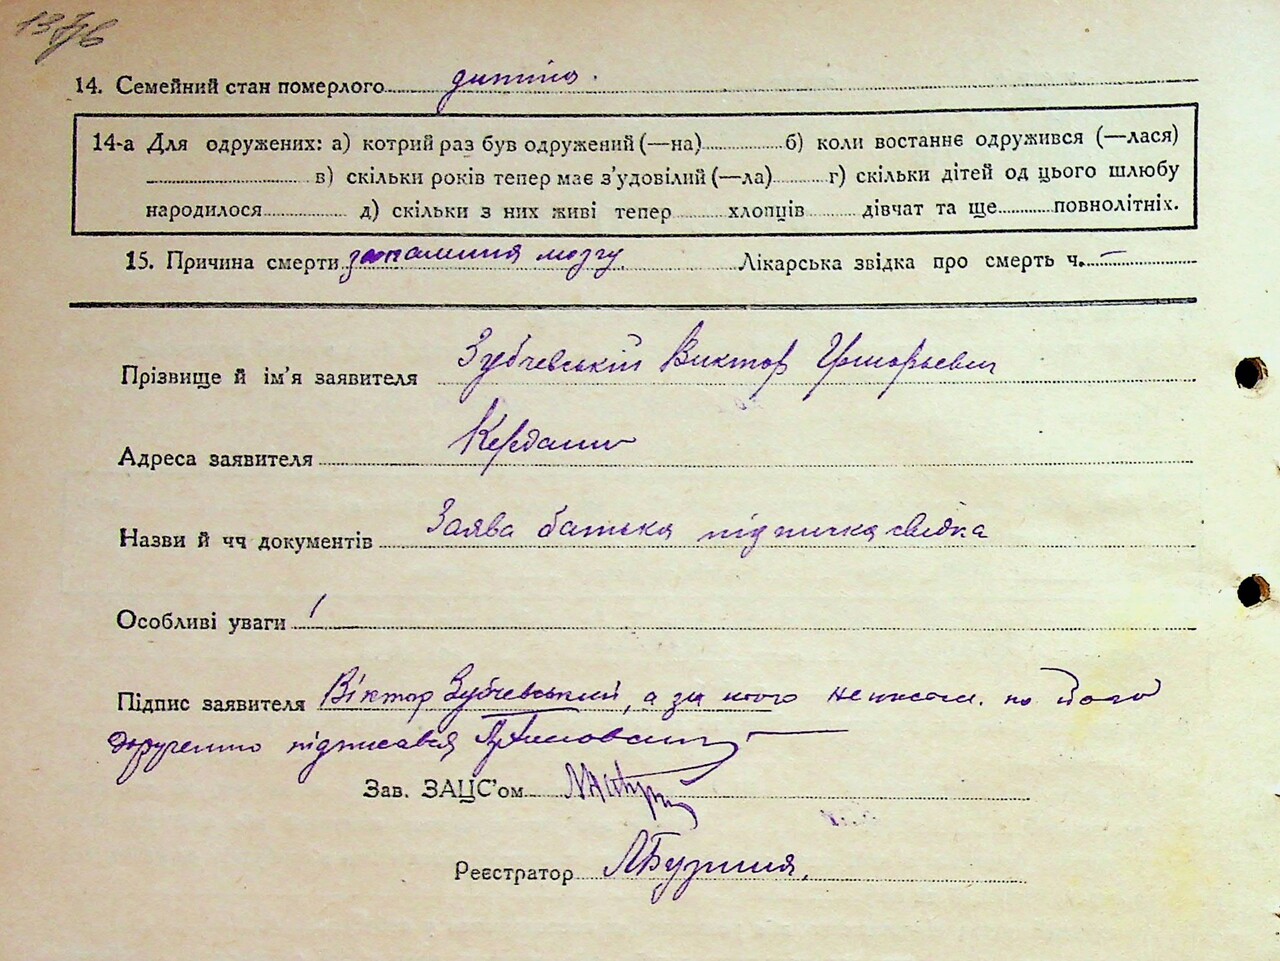 14. Семейний стан померлого дитина.
14-а Для одружених: а) котрий раз був одружений (—на) б) коли востаннє одружився (—лася)
в) скільки років тепер має з’удовілий (—ла) г) скільки дітей од цього шлюбу
народилося д) скільки з них живі тепер хлопців дівчат та ще повнолітніх.
15. Причина смерти запалення мозгу. Лікарська звідка про смерть ч. —
Прізвище й ім’я заявителя Зубчевський Виктор Григорьевич
Адреса заявителя
Назви й чч документів Заява батька підписка свідка
Особливі уваги
Підпис заявителя Віктор Зубчевський, а за його неписьм. по його
дорученню підписався
Зав. ЗАЦС’ом
Реєстратор